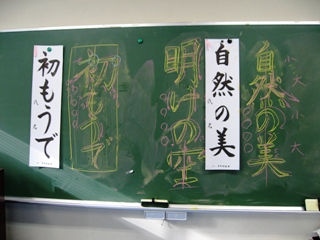 小大小大
自然の美
自然の美
明けの空
初もうで
初もうで